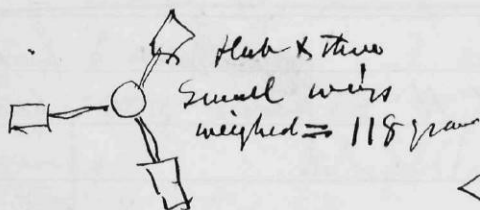 Hub & three
Small wings
weighed = 118 grams